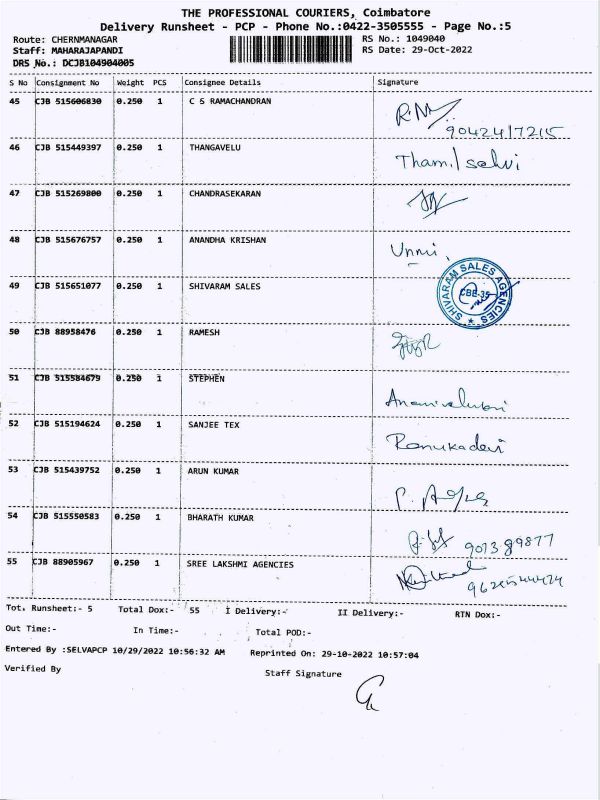 THE PROFESSIONAL COURIERS, Coimbatore
Delivery Runsheet - PCP - Phone No.:0422-3505555 - Page No.:5
Route: CHERNMANAGAR
RS No.: 1049040
Staff: MAHARAJAPANDI
RS Date: 29-Oct-2022
DRS No.: DCJB104904005
S No Consignment No Weight PCS Consignee Details Signature
45 CJB 515606830 0.250 1 C S RAMACHANDRAN
9042417215
46 CJB 515449397 0.250 1 THANGAVELU
Thamil selvi
47 CJB 515269800 0.250 1 CHANDRASEKARAN
48 CJB 515676757 0.250 1 ANANDHA KRISHAN
Unni,
49 CJB 515651077 0.250 1 SHIVARAM SALES
SHIVARAM SALES AGENCIES
CBE-35
50 CJB 88958476 0.250 1 RAMESH
51 CJB 515584679 0.250 1 STEPHEN
52 CJB 515194624 0.250 1 SANJEE TEX
Ranukadevi
53 CJB 515439752 0.250 1 ARUN KUMAR
54 CJB 515550583 0.250 1 BHARATH KUMAR
55 CJB 88905967 0.250 1 SREE LAKSHMI AGENCIES
Tot. Runsheet:- 5 Total Dox:- 55 I Delivery:- II Delivery:- RTN Dox:-
Out Time:- In Time:- Total POD:-
Entered By :SELVAPCP 10/29/2022 10:56:32 AM Reprinted On: 29-10-2022 10:57:04
Verified By
Staff Signature